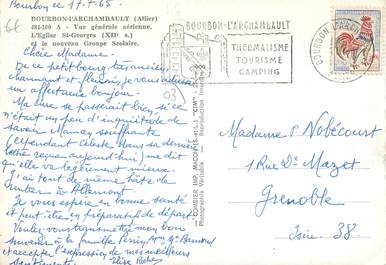 Bourbon ce 17-7-65.
BOURBON-L'ARCHAMBAULT (Allier)
401-100 A - Vue générale aérienne.
L'Eglise St-Georges (XIIe s.)
et le nouveau Groupe Scolaire.
Chère Madame.
De ce petit bourg très ancien,
charmant et fleuri, je vous adresse
un affectueux bonjour.
Ma cure se passerait bien si ce
n'était un peu d'inquiétude de
savoir Maman souffrante
Cependant Céleste dans sa dernière
lettre reçue aujourd'hui me dit
qu'elle va légèrement mieux.
J'ai tout de même hâte de
rentrer à Allemont.
Je vous espère en bonne santé
et peut-être en préparatifs de départ.
Voulez-vous transmettre mon bon
souvenir à la famille
et accepter l'expression de mes meilleurs
sentiments.
COMBIER IMP. MACON (S.-et-L.) "CIM"
Photographie Véritable - Reproduction Interdite
03
BOURBON-L'ARCHAMBAULT
THERMALISME
TOURISME
CAMPING
BOURBON L'ARCHAMBAULT
Madame P. Nobécourt
1 Rue Dr Mazet
Grenoble
Isère - 38